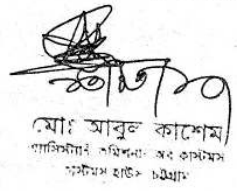 মোঃ আবুল কাশেম
এ্যাসিস্ট্যান্ট কমিশনার অব কাস্টমস
কাস্টমস হাউস চট্টগ্রাম